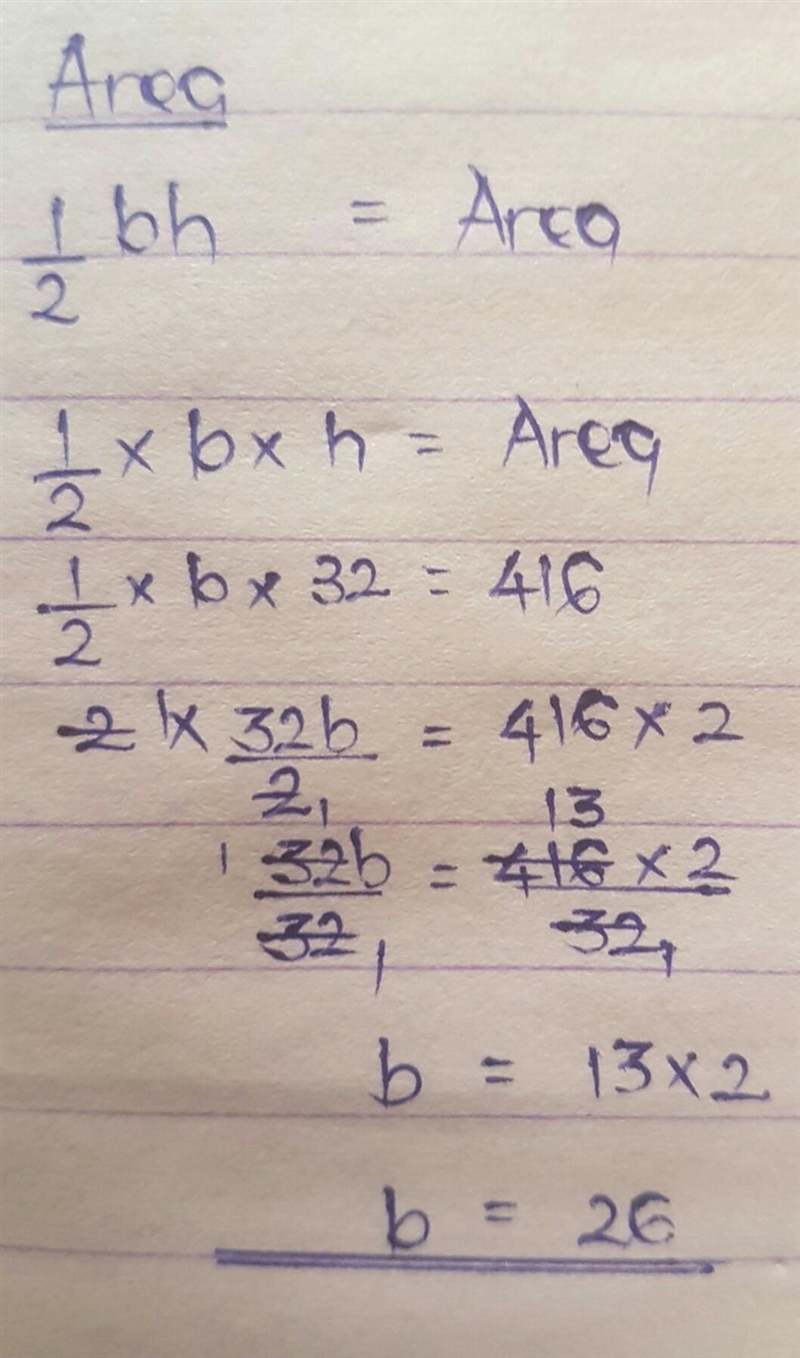 Area
1/2 bh = Area
1/2 × b × h = Area
1/2 × b × 32 = 416
2 1 × 32b/2 1 = 416 × 2
1 32b/32 1 = 13 416 × 2/32 1
b = 13 × 2
b = 26